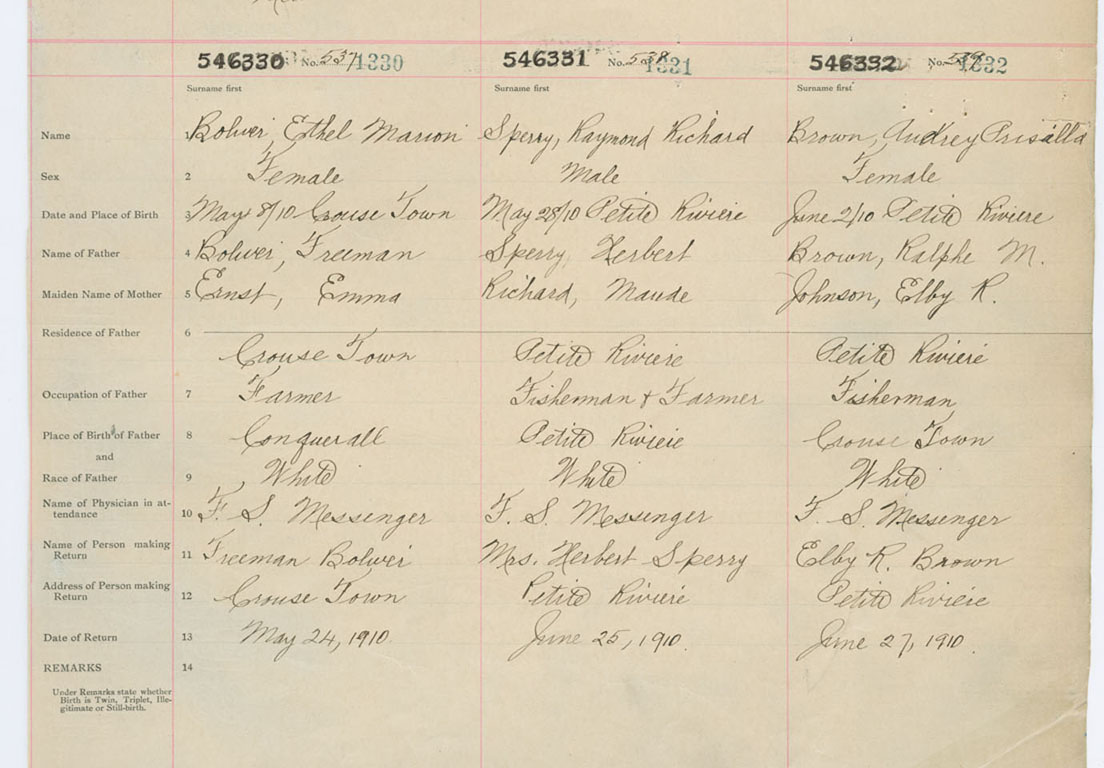 546330 No. 537 1330 546331 No. 538 1331 546332 No. 539 1332
Surname first Surname first Surname first
Name 1 Bolwer, Ethel Marion Sperry, Raymond Richard Brown, Audrey Prisalla
Sex 2 Female Male Female
Date and Place of Birth 3 May 8/10 Crouse Town May 28/10 Petite Riviere June 2/10 Petite Riviere
Name of Father 4 Bolwer, Freeman Sperry, Herbert Brown, Ralphe M.
Maiden Name of Mother 5 Ernst, Emma Richard, Maude Johnson, Elby R.
Residence of Father 6
Crouse Town Petite Riviere Petite Riviere
Occupation of Father 7 Farmer Fisherman & Farmer Fisherman
Place of Birth of Father 8 Conquerall Petite Riviere Crouse Town
and
Race of Father 9 White White White
Name of Physician in at-
tendance 10 F. S. Messenger F. S. Messenger F. S. Messenger
Name of Person making
Return 11 Freeman Bolwer Mrs. Herbert Sperry Elby R. Brown
Address of Person making
Return 12 Crouse Town Petite Riviere Petite Riviere
Date of Return 13 May 24, 1910 June 25, 1910. June 27, 1910.
REMARKS 14
Under Remarks state whether
Birth is Twin, Triplet, Ille-
gitimate or Still-birth.